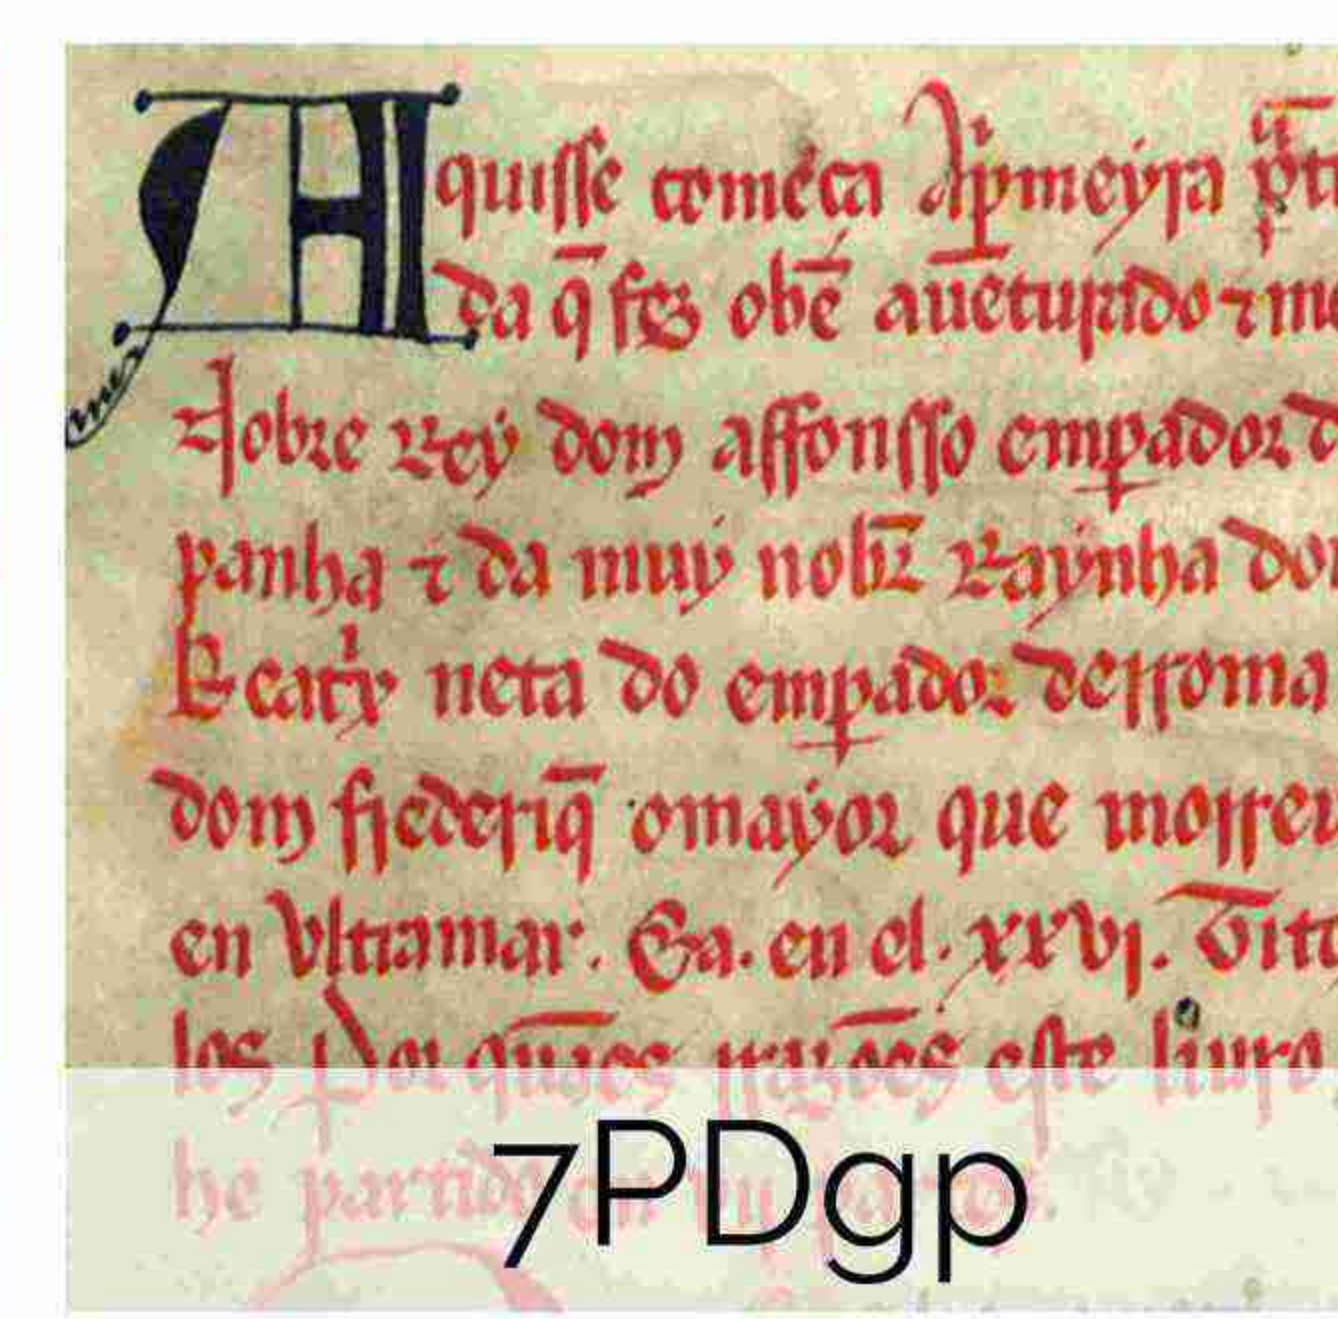 Aquisse comēça Apmeyra
da q̄ fez obē auēturado ⁊ mu
⁊ Nobre Rey dom affonsso emꝑador d
panha ⁊ da muy nobꝛ̄ Raynha don
Beatᶦy neta do emꝑador derroma
dom frederiq̄ omayor que morreu
en Vltramar. Ea. en el. xxvj. titu
los este liuro
he partido en
7PDgp